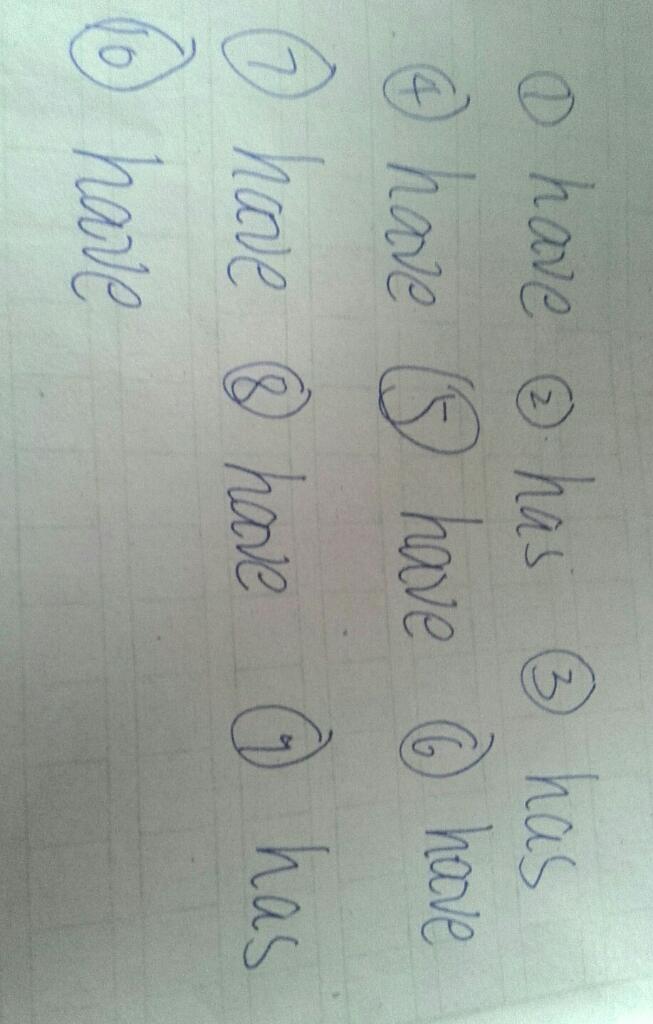 ① have ② has ③ has
④ have ⑤ have ⑥ have
⑦ have ⑧ have ⑨ has
⑩ have